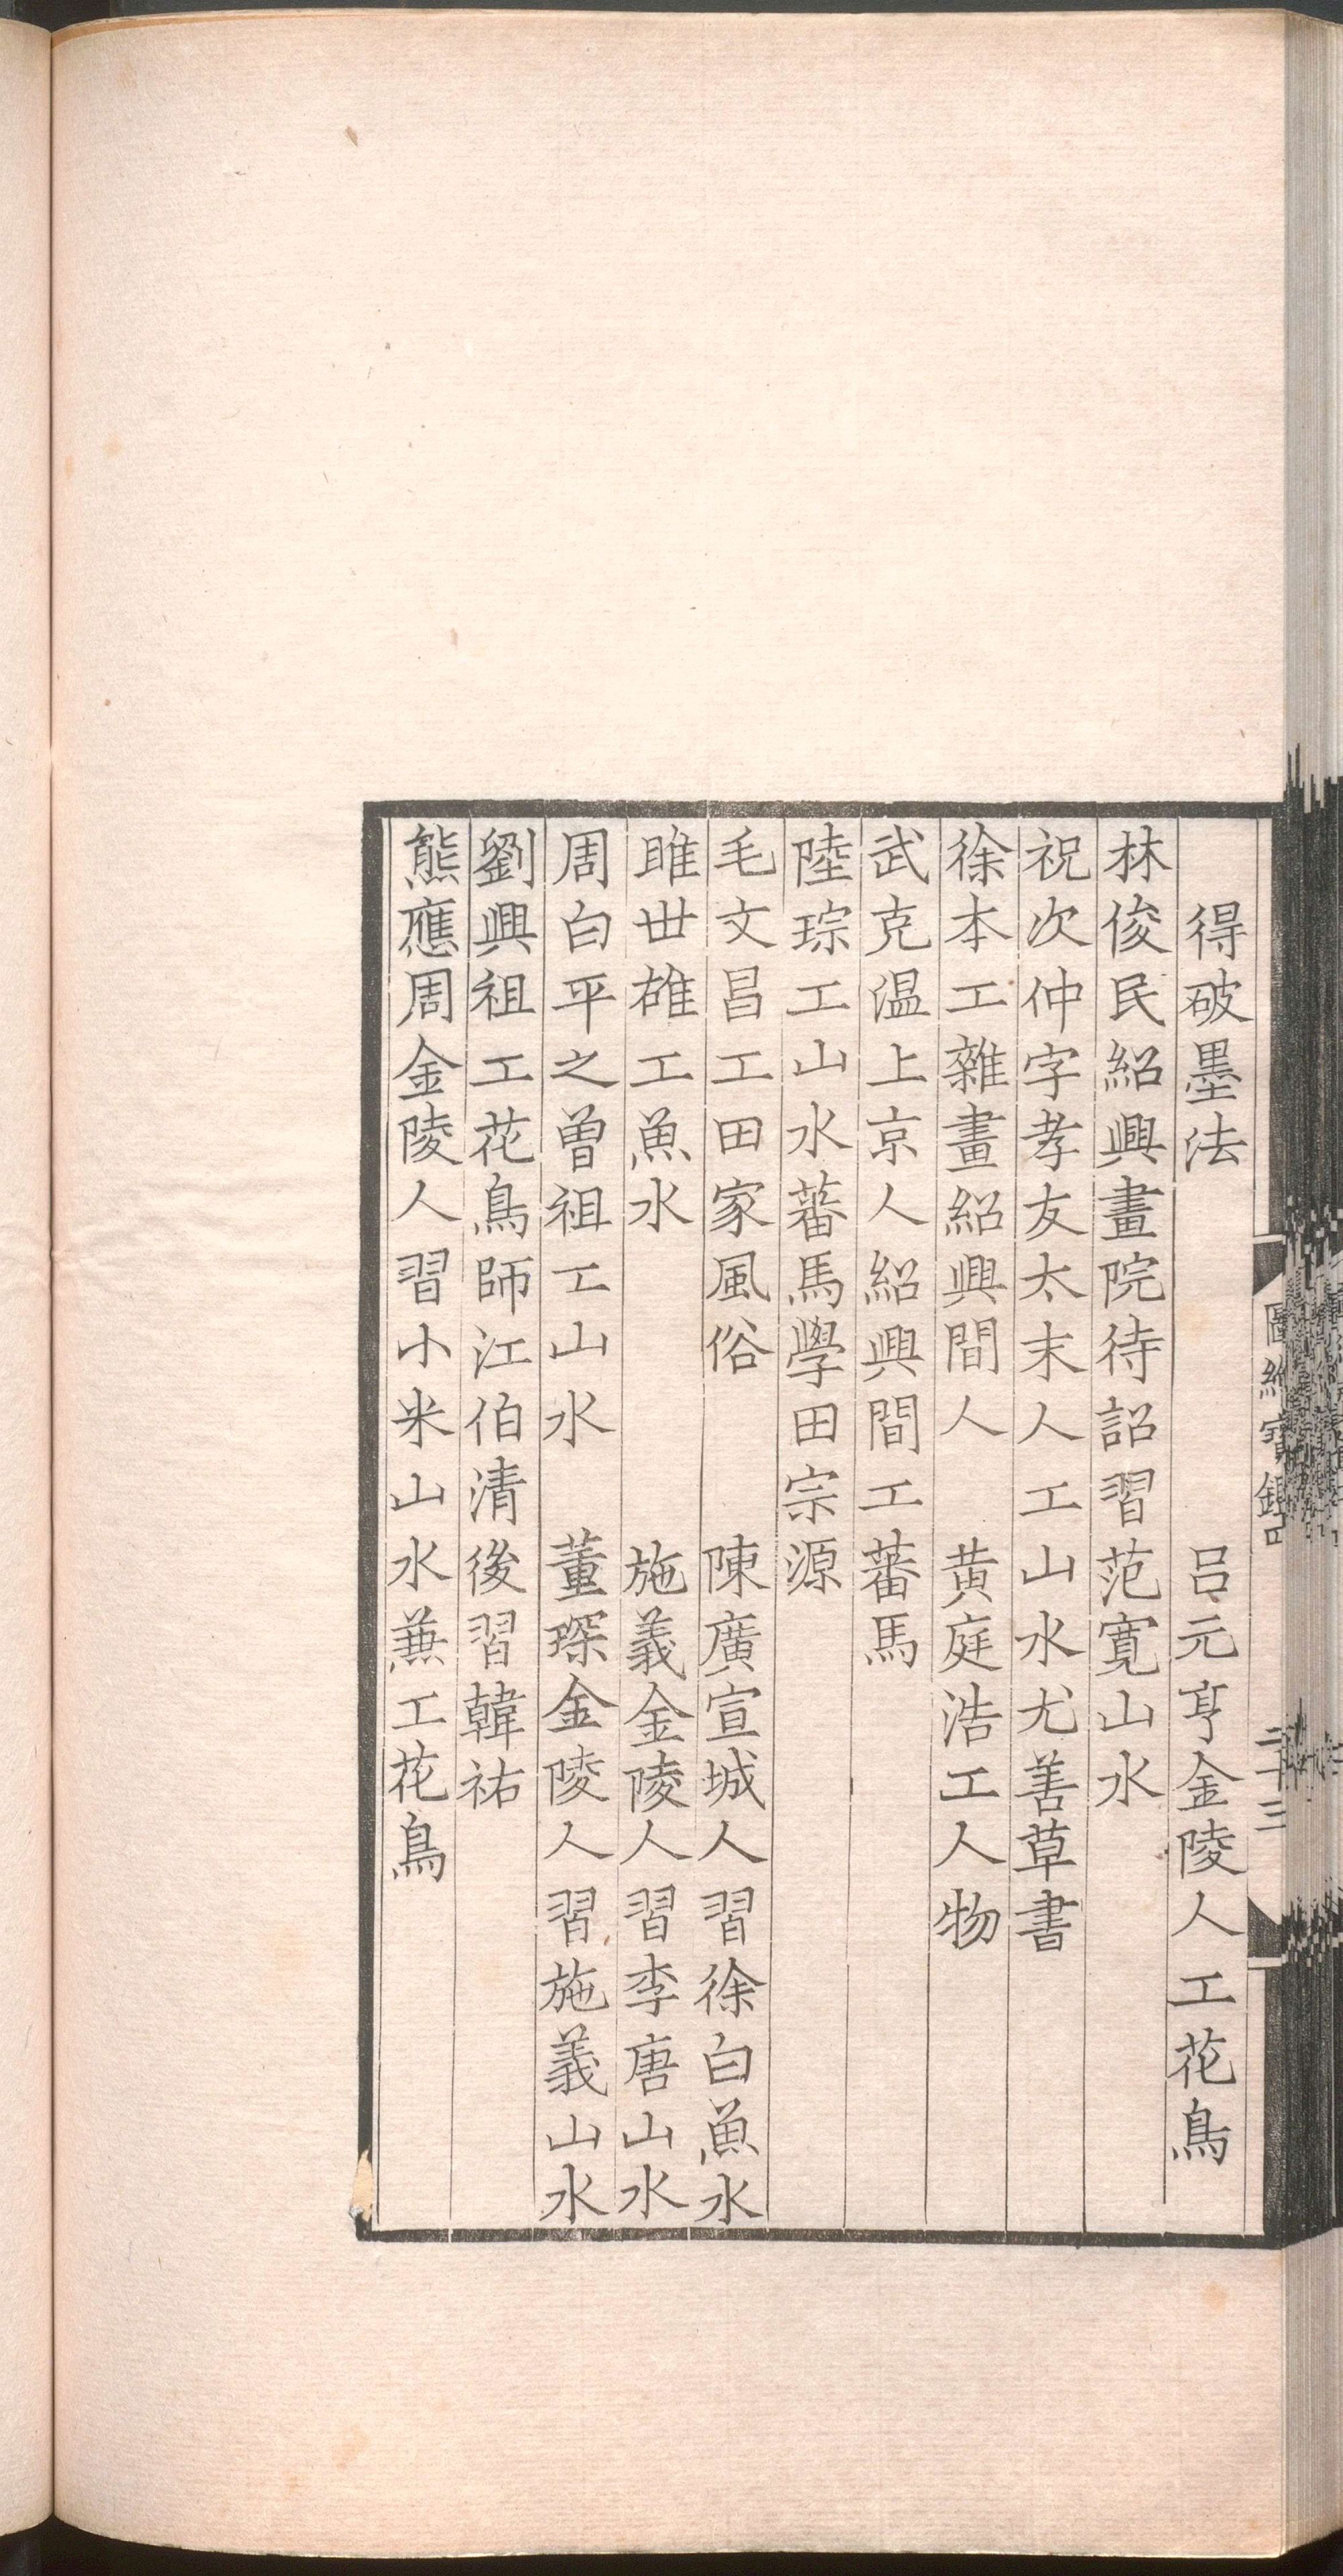 得破墨法　呂元亨金陵人工花鳥
林俊民紹興畫院待詔習范寬山水
祝次仲字孝友太末人工山水尤善草書
徐本工雜畫紹興間人　黄庭浩工人物
武克温上京人紹興間工蕃馬
陸琮工山水蕃馬學田宗源
毛文昌工田家風俗　陳廣宣城人習徐白魚水
睢世雄工魚水　施義金陵人習李唐山水
周白平之曾祖工山水　董琛金陵人習施義山水
劉興祖工花鳥師江伯清後習韓祐
熊應周金陵人習小米山水兼工花鳥
圖繪寶鑑四
二十三